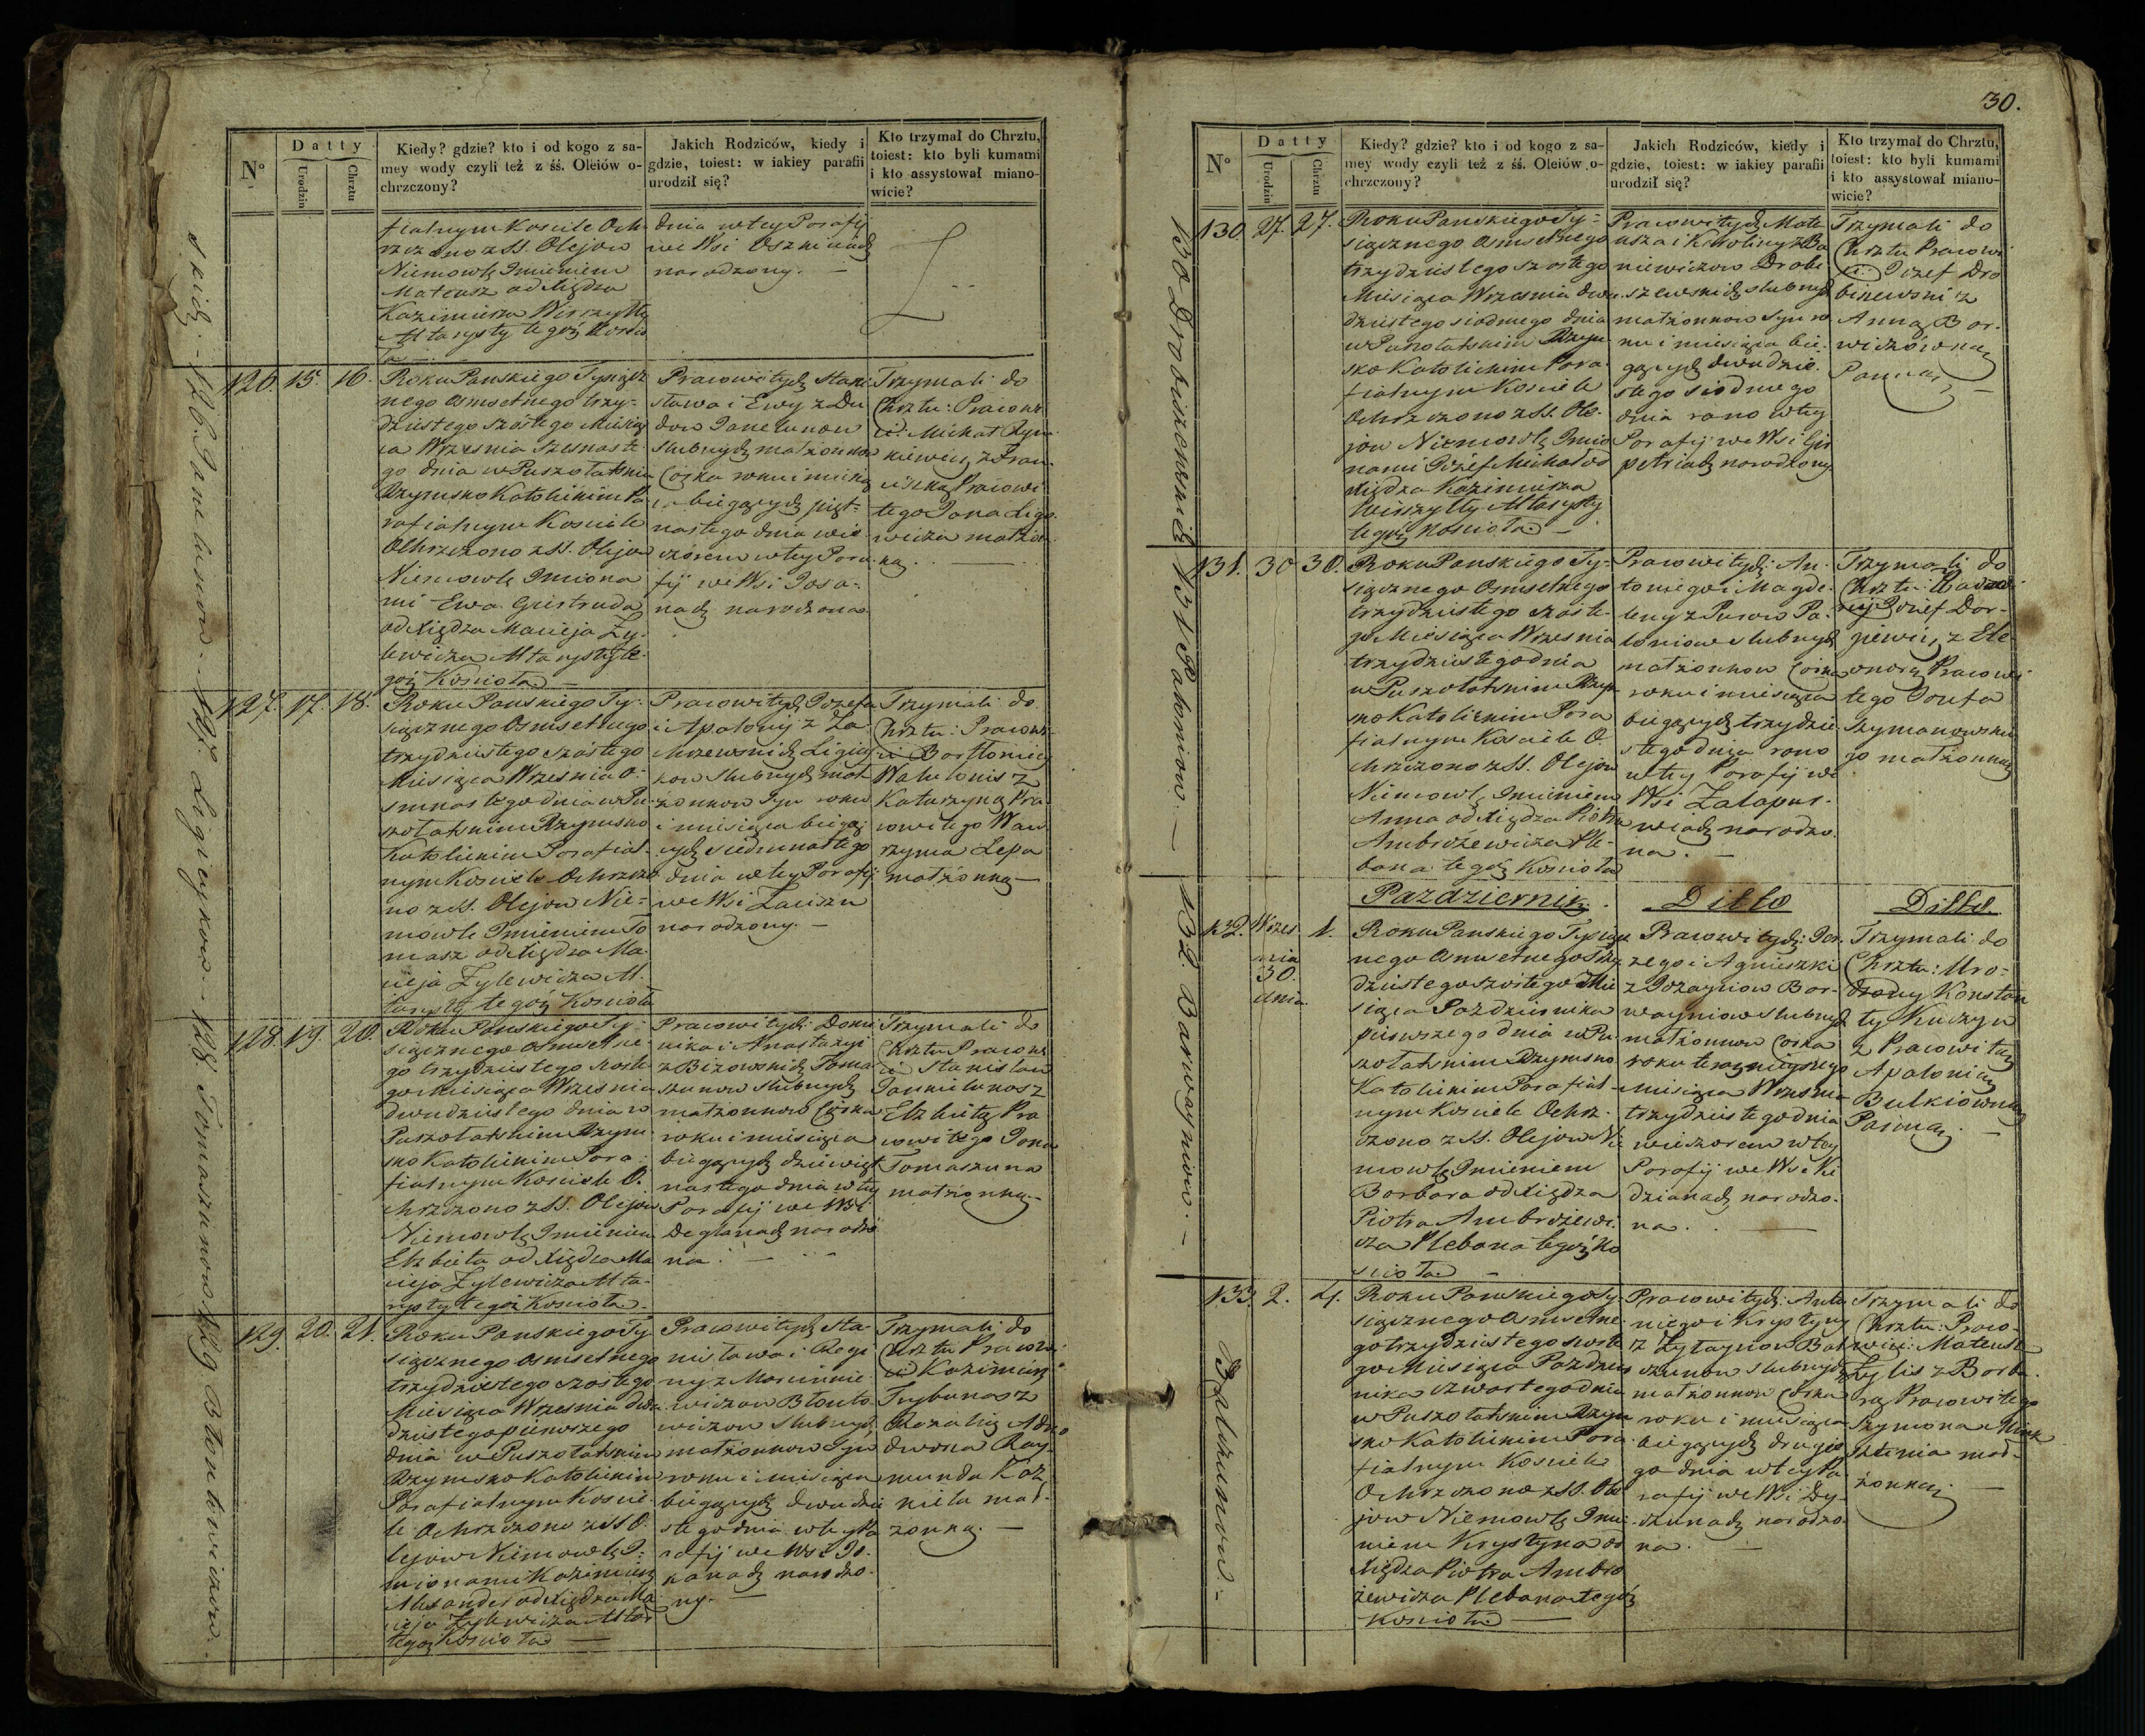 30.
N°
Datty
Urodzin
Chrztu
Kiedy? gdzie? kto i od kogo z sa-
mey wody czyli też z śś. Oleiów o-
chrzczony?
Jakich Rodziców, kiedy i
gdzie, toiest: w iakiey parafii
urodził się?
Kto trzymał do Chrztu,
toiest: kto byli kumami
i kto assystował miano-
wicie?
fialnym Kosciele Och
rzczono z SS. Olejow
Niemowlę Imieniem
Mateusz od Xiędza
Kazimierza Wirszyłły
Altarysty tegoż Koscio
ła
dnia w tey Parafij
we Wsi
narodzony. —
126. 15. 16.
Roku Panskiego Tysiącz
nego Osmsetnego trzy-
dziestego szóstego Miesią
ca Wrzesnia szesnaste
go dnia w Puszołatskim
Rzymsko Katolickim Pa
rafialnym Kosciele
Ochrzczono z SS. Olejow
Niemowlę Imiona
mi Ewa Giertruda
od Xiędza Macieja Ży-
lewicza Altarysty te-
goż Kościoła —
Pracowitych Stani
sława i Ewy z Du
dow Janelunow
Slubnych małżonkow
Corka roku i miesią
ca bieżących pięt-
nastego dnia wie
czorem w tey Para
fij we Wsi Josa-
nach narodzona
Trzymali do
Chrztu: Pracowi
ci: Michał Rym
kiewicz z Fran
ciszką Pracowi
tego Jana Ligo-
wicza małżon
ką. —
127. 17. 18.
Roku Panskiego Ty-
siącznego Osmsetnego
trzydziestego szóstego
Miesiąca Wrzesnia o-
smnastego dnia w Pu-
szołatskim Rzymsko
Katolickim Parafial-
nym Kosciele Ochrzczo
no z SS. Olejow Nie-
mowle Imieniem To
masz od Xiędza Ma-
cieja Żylewicza Al-
tarysty tegoż Kościoła
Pracowitych Jozefa
i Apolonij z Za
chrzewskich Ligiey
kow Slubnych mał
żonkow Syn roku
i miesiąca bieżą-
cych siedmnastego
dnia w tey Parafij
we Wsi Zaciszu
narodzony. —
Trzymali do
Chrztu: Pracowi
ci Bartłomiey
Walulonis z
Katarzyną Pra
cowitego Waw
rzyna Lepa
małżonką —
128. 19. 20.
Roku Panskiego Ty-
siącznego Osmsetne
go trzydziestego szoste
go Miesiąca Wrzesnia
dwudziestego dnia w
Puszołatskim Rzym-
sko Katolickim Para-
fialnym Kosciele O-
chrzczono z SS. Olejow
Niemowlę Imieniem
Elzbieta od Xiędza Ma
cieja Żylewicza Alta-
rysty tegoż Kościoła.
Pracowitych: Domi
nika i Anastazyi
z Bizowskich Toma
szunow Slubnych
małzonkow Corka
roku i miesiąca
bieżących dziewięt
nastego dnia w tey
Parafij we Wsi
Deglanach narodzo
na. —
Trzymali do
Chrztu Pracowi
ci Stanisław
z
Elzbietą Pra
cowitego Jona
Tomaszuna
małżonką.
129. 20. 21.
Roku Panskiego Ty
siącznego Osmsetnego
trzydziestego szostego
Miesiąca Wrzesnia dwu
dziestego pierwszego
dnia w Puszołatskim
Rzymsko Katolickim
Parafialnym Koscie-
le Ochrzczono z SS O-
lejow Niemowlę I-
mionami Kazimierz
Alexander od Xiędza Ma
cieja Żylewicza Altar
tegoż Kościoła —
Pracowitych Sta-
nisława i Regi
ny z Marcinkie
wiczow Błonto
wiczow Slubnych
małżonkow Syn
roku i miesiąca
bieżących dwudzie
stego dnia w tey Pa
rafij we Wsi Jo-
kanach narodzo-
ny. —
Trzymali do
Chrztu Pracowi
ci Kazimierz
Trybunas z
Rozalią
Ray-
munda Koz
niela mał-
żonką. —
126. Janelunow. 127. Ligieykow. 128. Tomaszunow. 129. Błontowiczow.
130. Drobiszewskich 131 Paloniow. — 132. Barwayniow. —
130. 27. 27.
Roku Panskiego Ty-
siącznego Osmsetnego
trzydziestego szostego
Miesiąca Wrzesnia dwu
dziestego siodmego dnia
w Puszołatskim Rzym
sko Katolickim Para-
fialnym Kosciele
Ochrzczono z SS. Ole-
jow Niemowlę Imio
nami Józef Michał od
Xiędza Kazimierza
Wirszyłły Altarysty
tegoż Kościoła —
Pracowitych Mate
usza i Karoliny z Ba
niewiczow Drobi-
szewskich slubnych
małżonkow Syn ro
ku i miesiąca bie-
żących dwudzie-
stego siodmego
dnia rano w tey
Parafij we Wsi Gir
petriach narodzony
Trzymali do
Chrztu Pracowi
ci: Jozef Dro
biszewski z
Anną Bor-
wiczówną
Panną —
131. 30 30.
Roku Panskiego Ty-
siącznego Osmsetnego
trzydziestego szoste-
go Miesiąca Wrzesnia
trzydziestego dnia
w Puszołatskim Rzym
sko Katolickim Para
fialnym Kosciele O-
chrzczono z SS. Olejow
Niemowlę Imieniem
Anna od Xiędza Piotra
Ambrożewicza Ple-
bana tegoż Kościoła
Pracowitych: An-
toniego i Magda-
leny z Purow Pa-
loniow slubnych
małżonkow Corka
roku i miesiąca
bieżących trzydzie
stego dnia rano
w tey Parafij we
Wsi Zatapur-
wiach narodzo-
na. —
Trzymali do
Chrztu:
Jozef Dar-
giewicz z Ele-
onorą Pracowi
tego Jozefa
Szymanowskie
go małżonką
Pazdziernik. Ditto Ditto
132. Wrzes
nia
30.
dnia 1.
Roku Panskiego Tysiącz
nego Osmsetnego trzy
dziestego szostego Mie
siąca Pazdziernika
pierwszego dnia w Pu
szołatskim Rzymsko
Katolickim Parafial-
nym Kosciele Ochrz-
czono z SS. Olejow Nie
mowlę Imieniem
Barbara od Xiędza
Piotra Ambrożewi
cza Plebana tegoż Ko
scioła —
Pracowitych: Jer-
zego i Agnieszki
z Jozayciow Bar-
wayniow slubnych
małżonkow Corka
roku terazniejszego
miesiąca Wrzesnia
trzydziestego dnia
wieczorem w tey
Parafij we Wsi Ki
dzianach narodzo-
na. —
Trzymali do
Chrztu: Uro-
dzony Konstan
ty Kuczyn
z Pracowitą
Apolonią
Bulkiówną
Panną. —
133. 2. 4.
Roku Panskiego Ty-
siącznego Osmsetne
go trzydziestego szoste
go Miesiąca Pazdzier
nika czwartego dnia
w Puszołatskim Rzym
sko Katolickim Para
fialnym Kosciele
Ochrzczono z SS. Ole
jow Niemowlę Imie
niem Krystyna od
Xiędza Piotra Ambro
żewicza Plebana tegoż
Kościoła —
Pracowitych: Anto
niego i Krystyny
z Żytayciow Bał
czunow slubnych
małżonkow Corka
roku i miesiąca
bieżących drugie
go dnia w tey Pa
rafij we Wsi Dy-
czunach narodzo
na. —
Trzymali do
Chrztu: Praco-
wici: Mateusz
z Barba
rą Pracowitego
Szymona
mał-
żonką —
Bałczunow —